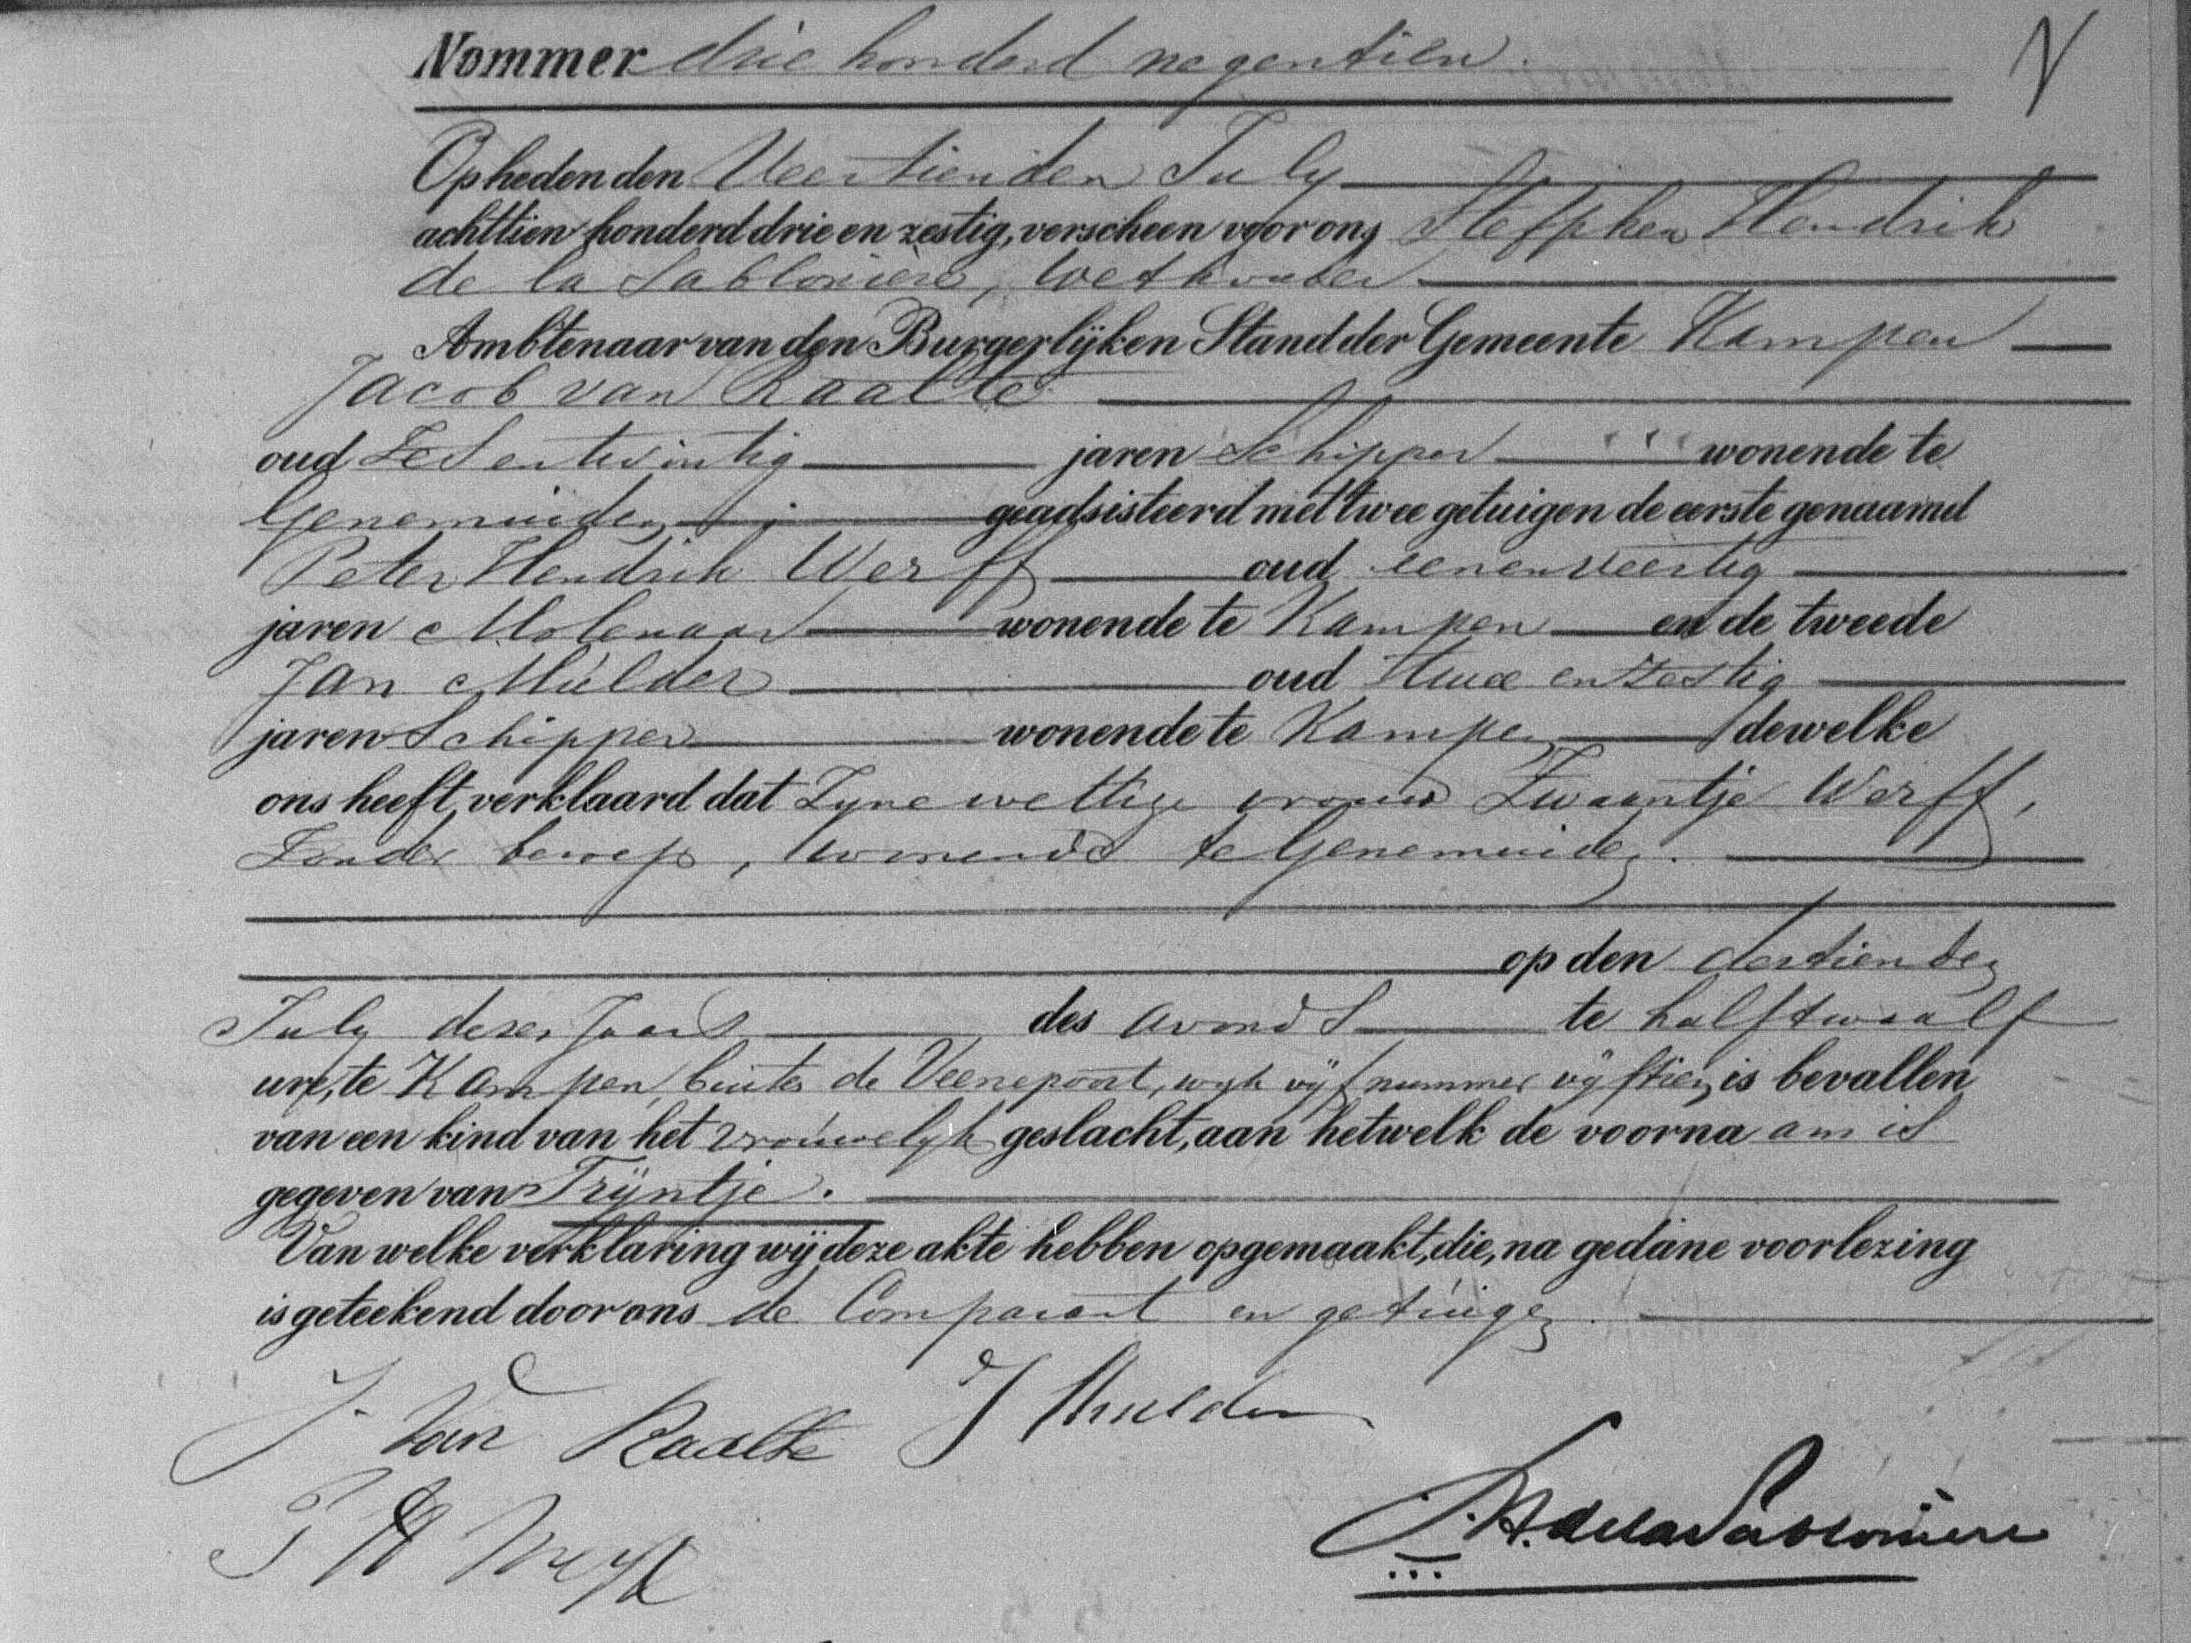 Nommer drie honderd negentien.
Op heden den Veertienden July
achttien honderd drie en zestig, verscheen voor ons Steffhen Hendrik
de la Sabloniere, Wethouder
Ambtenaar van den Burgerlijken Stand der Gemeente Kampen
Jacob van Raalte
oud Zes en twintig jaren Schipper wonende te
Genemuiden geadsisteerd met twee getuigen de eerste genaamd
Peter Hendrik Werff oud eenenveertig
jaren Molenaar wonende te Kampen en de tweede
Jan Mulder oud twee en zestig
jaren Schipper wonende te Kampen dewelke
ons heeft verklaard dat Zyne wettige vrouw Zwaantje Werff,
Zonder beroep, wonende te Genemuiden.
op den dertienden
July dezes Jaars des avonds te half twaalf
ure, te Kampen, buiten de Veenepoort, wyk vyf nummer vyftien is bevallen
van een kind van het vrouwelyk geslacht, aan hetwelk de voornaam is
gegeven van Trÿntje.
Van welke verklaring wij deze akte hebben opgemaakt, die, na gedane voorlezing
is geteekend door ons de Comparant en getuigen.
J. Van Raalte J Mulder
P H Werff
S. H. de la Sabloniere